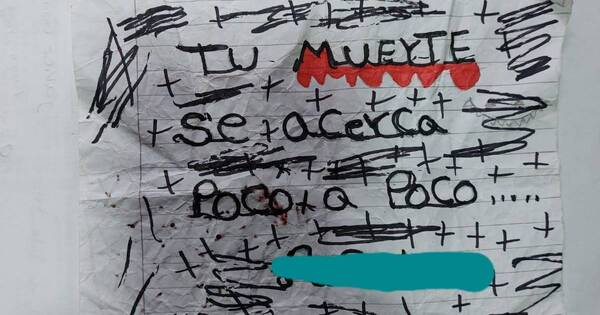 TU MUEYTE
Se acerca
Poco a Poco .....